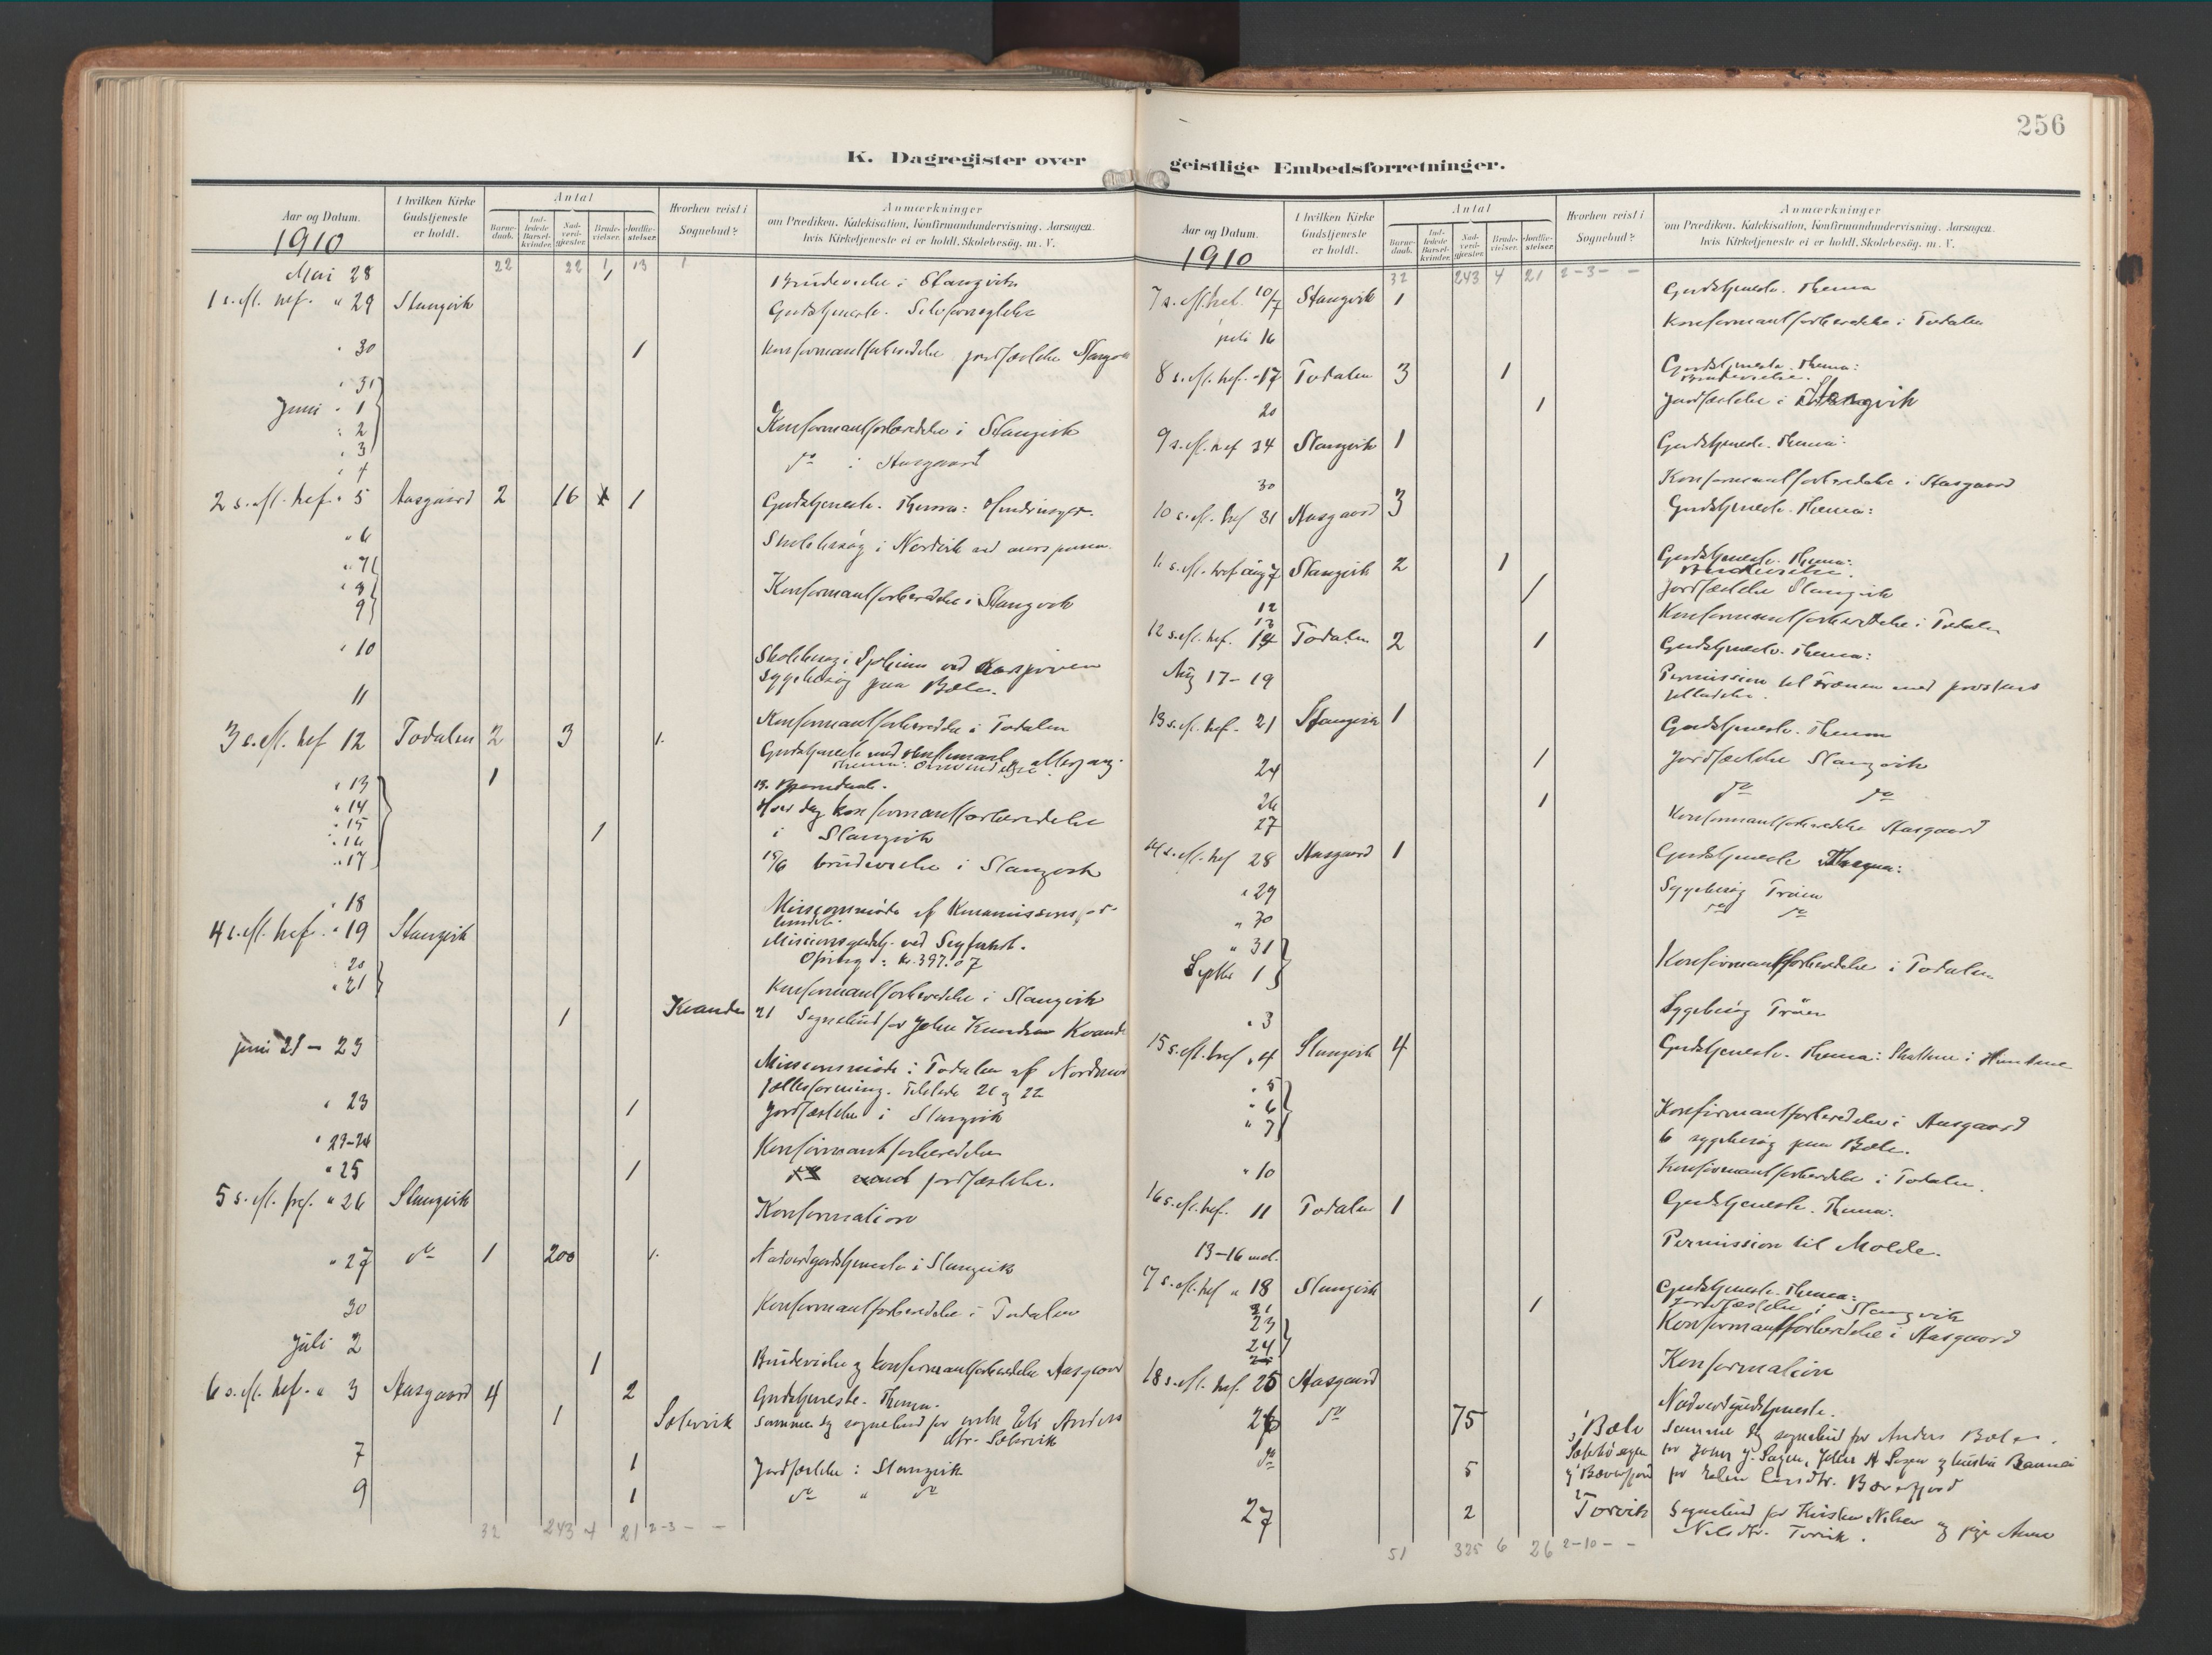 256
K. Dagregister over
geistlige Embedsforretninger.
Aar og Datum.
I hvilken Kirke Gudstjeneste er holdt.
Antal
Barne-daab.
Ind-ledede Barsel-kvinder.
Nad-verd-gjester.
Brude-vielser.
Jordfæ-stelser.
Hvorhen reist i Sognebud?
Anmærkninger
om Prædiken, Katekisation, Konfirmandundervisning. Aarsagen
hvis Kirketjeneste ei er holdt. Skolebesög. m. V.
1910
22 22 1 13 1
Mai 28 1 Brudevielse i Stangvik
1 s. eft. tref. " 29 Stangvik Gudstjeneste.
" 30 1 Konfirmantforberedelse jordfæstelse
" 31
Juni " 1
" 2 Konfirmantforberedelse i Stangvik
" 3
" 4 do i Aasgaard
2 s. eft. tref. " 5 Aasgaard 2 16 1 Gudstjeneste. Thema:
" 6 Skolebesøg i Nordvik
" 7
" 8 Konfirmantforberedelse i Stangvik
9
" 10 Skolebesøg i
Sygebesøg paa Bæle.
11 Konfirmantforberedelse i Todalen
3 s. eft. tref 12 Todalen 2 3 1. Gudstjeneste med
Thema:
" 13 1 13. Barnedaab.
" 14 Hver dag konfirmantforberedelse
" 15 1 i Stangvik
" 16
" 17 15/6 brudevielse i Stangvik
" 18 Missionsmøde af
4 s. eft. tref. " 19 Stangvik Missionsgudstj. ved
Ofring: kr. 397.07
" 20
" 21 Konfirmantforberedelse i Stangvik
1 Kvande 21 Sognebud for John Knudsen Kvande
juni 21 – 23 Missionsmøde i Todalen af
Tilstede 21 og 22
" 23 1 Jordfæstelse i Stangvik
" 23-24 Konfirmantforberedelse
" 25 1 jordfæstelse.
5 s. eft. tref. " 26 Stangvik Konfirmation
" 27 do 1 200 1. Nadverdgudstjeneste i Stangvik
30 Konfirmantforberedelse i Todalen
Juli 2 1 Brudevielse og konfirmantforberedelse Aasgaard
6 s. eft. tref. " 3 Aasgaard 4 2 Gudstjeneste. Thema.
1 Sætervik samme dg sognebud for enke Anders
dtr. Sætervik
7 1 Jordfæstelse i Stangvik
9 1 do " do
32 243 4 21 2-3 - -
Aar og Datum.
I hvilken Kirke Gudstjeneste er holdt.
Antal
Barne-daab.
Ind-ledede Barsel-kvinder.
Nad-verd-gjester.
Brude-vielser.
Jordfæ-stelser.
Hvorhen reist i Sognebud?
Anmærkninger
om Prædiken, Katekisation, Konfirmandundervisning. Aarsagen
hvis Kirketjeneste ei er holdt. Skolebesög. m. V.
1910
32 243 4 21 2-3- -
7 s. eft. tref. 10/7 Stangvik 1 Gudstjeneste. Thema
juli 16 Konfirmantforberedelse i Todalen
8 s. eft. tref. " 17 Todalen 3 1 Gudstjeneste. Thema:
Brudevielse.
20 1 Jordfæstelse i Stangvik
9 s. eft. tref 24 Stangvik 1 Gudstjeneste. Thema:
30 Konfirmantforberedelse i Aasgaard
10 s. eft. tref 31 Aasgaard 3 Gudstjeneste. Thema:
11 s. eft. tref aug 7 Stangvik 2 1 Gudstjeneste. Thema:
Brudevielse.
12 1 Jordfæstelse Stangvik
13 Konfirmantforberedelse i Todalen
12 s. eft. tref. 14 Todalen 2 1 Gudstjeneste. Thema:
Aug 17 – 19 Permission til med provstens
tilladelse.
13 s. eft. tref. 21 Stangvik 1 Gudstjeneste. Thema
24 1 Jordfæstelse Stangvik
26 1 do do
27 Konfirmantforberedelse Aasgaard
14 s. eft. tref 28 Aasgaard 1 Gudstjeneste Thema:
" 29 Sygebesøg Trøen
" 30 do do
" 31
Septbr 1 Konfirmantforberedelse i Todalen
" 3 Sygebesøg Trøen
15 s. eft. tref " 4 Stangvik 4 Gudstjeneste. Thema: Skatten i
" 5
" 6 Konfirmantforberedelse i Aasgaard
" 7 6 sygebesøg paa Bæle.
" 10 Konfirmantforberedelse i Todalen.
16 s. eft. tref. 11 Todalen 1 Gudstjeneste. Thema:
13 – 16 incl. Permission til Molde.
17 s. eft. tref " 18 Stangvik Gudstjeneste. Thema:
21 1 Jordfæstelse i Stangvik
23 Konfirmantforberedelse i Aasgaard
24
18 s. eft. tref. 25 Aasgaard Konfirmation
26 do 75 Nadverdgudstjeneste.
Bæle samme dg sognebud for Anders Bæle.
do 5 for John J. Sagen,
og Bæverfjord for Bæverfjord
27 2 Torvik Sognebud for Nilsen og pige Anne
Nilsdtr. Torvik.
51 325 6 26 2-10 - -